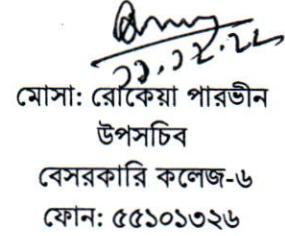 মোসা: রোকেয়া পারভীন
উপসচিব
বেসরকারি কলেজ-৬
ফোন: ৫৫১০১৩২৬